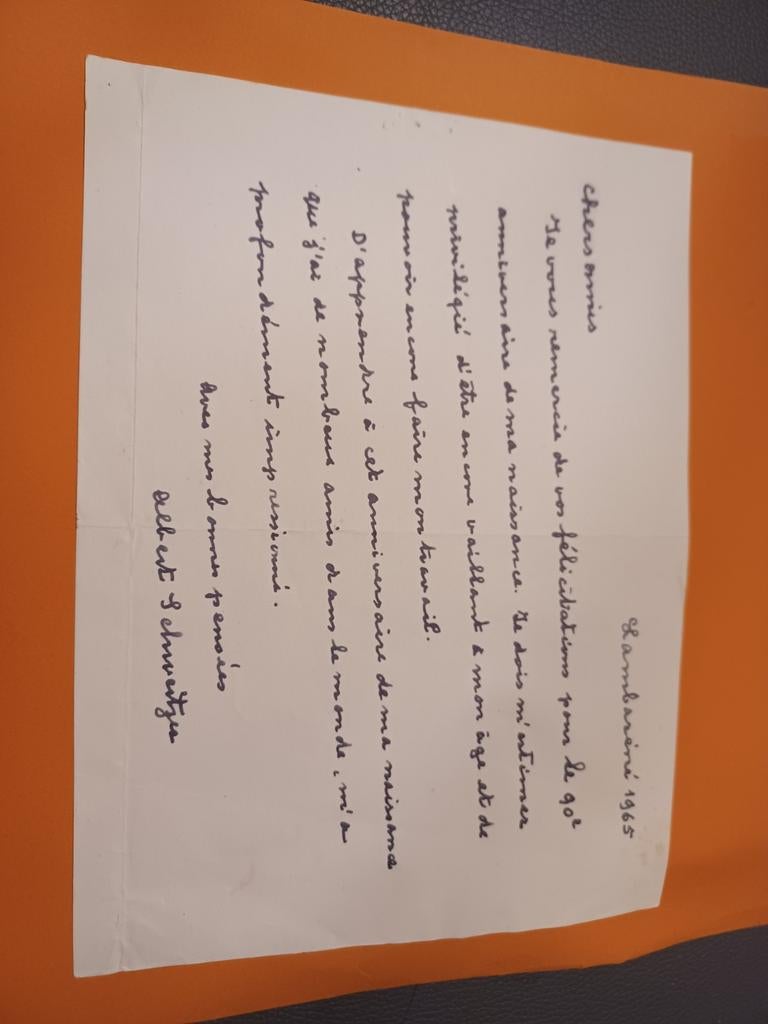 Lambaréné 1965
Chers amis
Je vous remercie de vos félicitations pour le 90e
anniversaire de ma naissance. Je dois m'estimer
privilégié d'être encore vaillant à mon âge et de
pouvoir encore faire mon travail.
D'apprendre à cet anniversaire de ma naissance
que j'ai de nombeux amis dans le monde, m'a
profondément impressionné.
Avec mes bonnes pensées
Albert Schweitzer